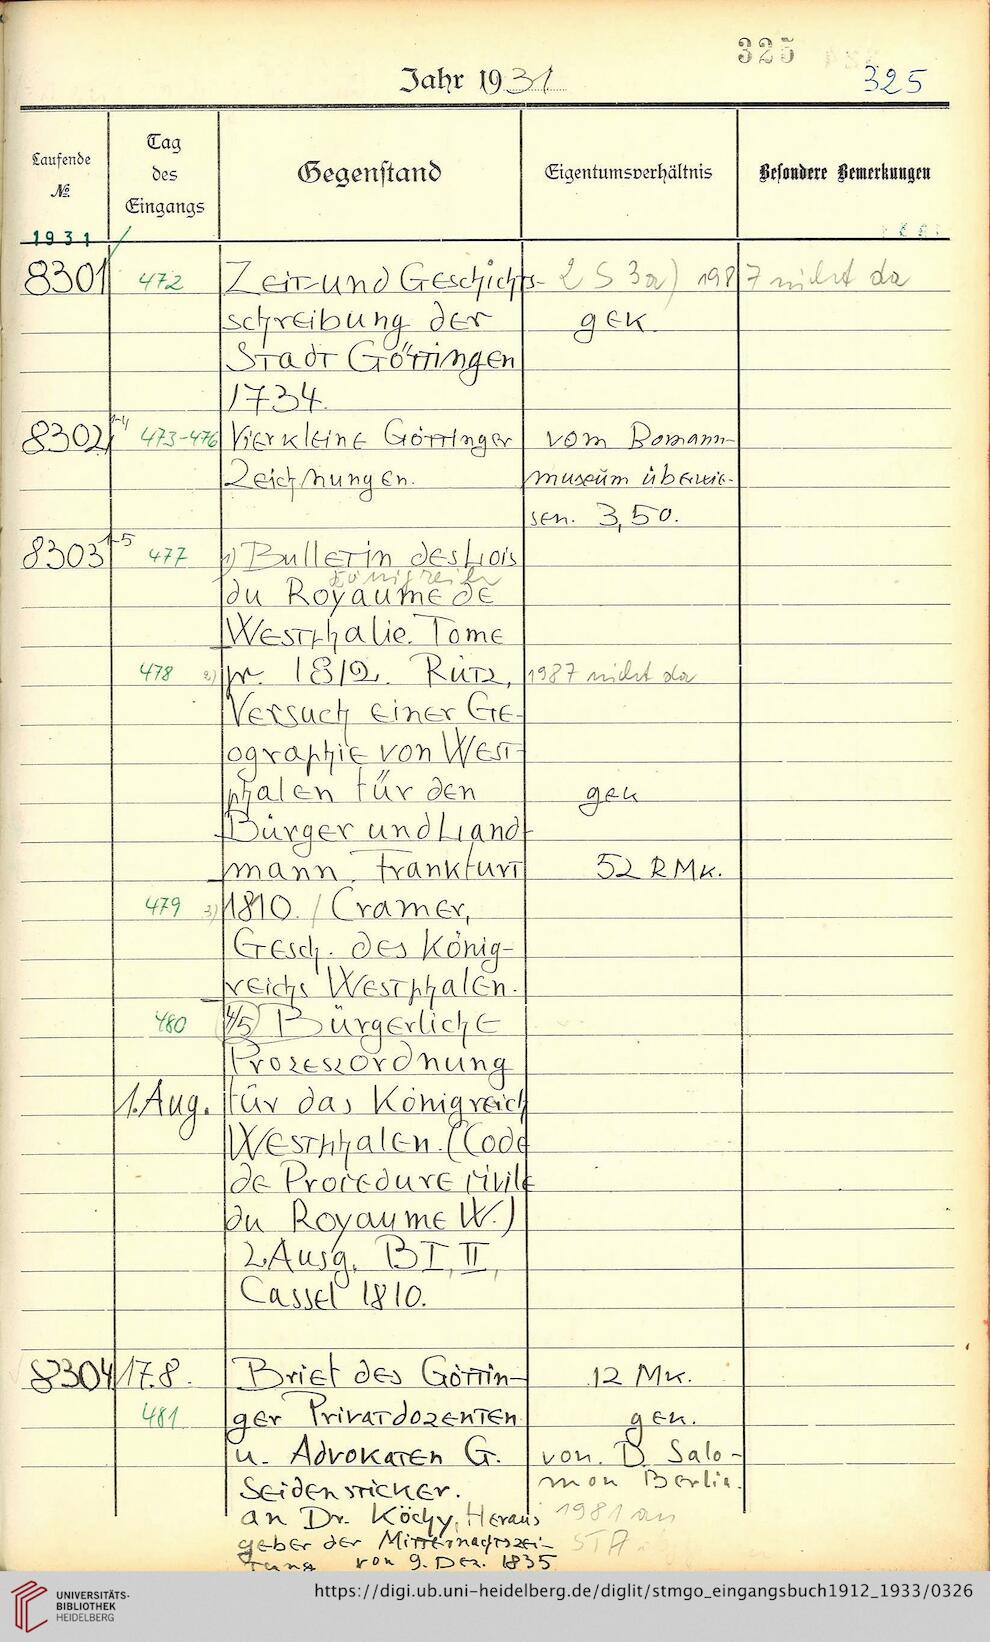 325
Jahr 1931
325
Laufende
№
Tag
des
Eingangs
Gegenstand
Eigentumsverhältnis
Besondere Bemerkungen
1931
8301 472 Zeit- und Geschichts- 2 S 3a) 1987 nicht da
schreibung der gek.
Stadt Göttingen
1734.
8302 1-4 473-476 Vier kleine Göttinger vom Bomann-
Zeichnungen. museum überwie-
sen. 3,50.
8303 1-5 477 1) Bulletin des Lois
Königreich
du Royaume de
Westphalie. Tome
478 2) pr. 1812. Rütz, 1987 nicht da
Versuch einer Ge-
ographie von West-
phalen für den gek
Bürger und Land-
mann. Frankfurt 52 RMk.
479 3) 1810. / Cramer,
Gesch. des König-
reichs Westphalen.
480 4/5) Bürgerliche
Prozeszordnung
1. Aug. für das Königreich
Westphalen. (Code
de Procedure civile
du Royaume W.)
2 Ausg. B I, II,
Cassel 1810.
8304 17.8. Brief des Göttin- 12 Mk.
481 ger Privatdozenten gek.
u. Advokaten G. von D. Salo-
Seidensticker. mon Berlin.
an Dr. Köchy, Heraus 1981 an
geber der Mitternachtszei- STA
tung von 9. Dez. 1835
UNIVERSITÄTS-
BIBLIOTHEK
HEIDELBERG
https://digi.ub.uni-heidelberg.de/diglit/stmgo_eingangsbuch1912_1933/0326